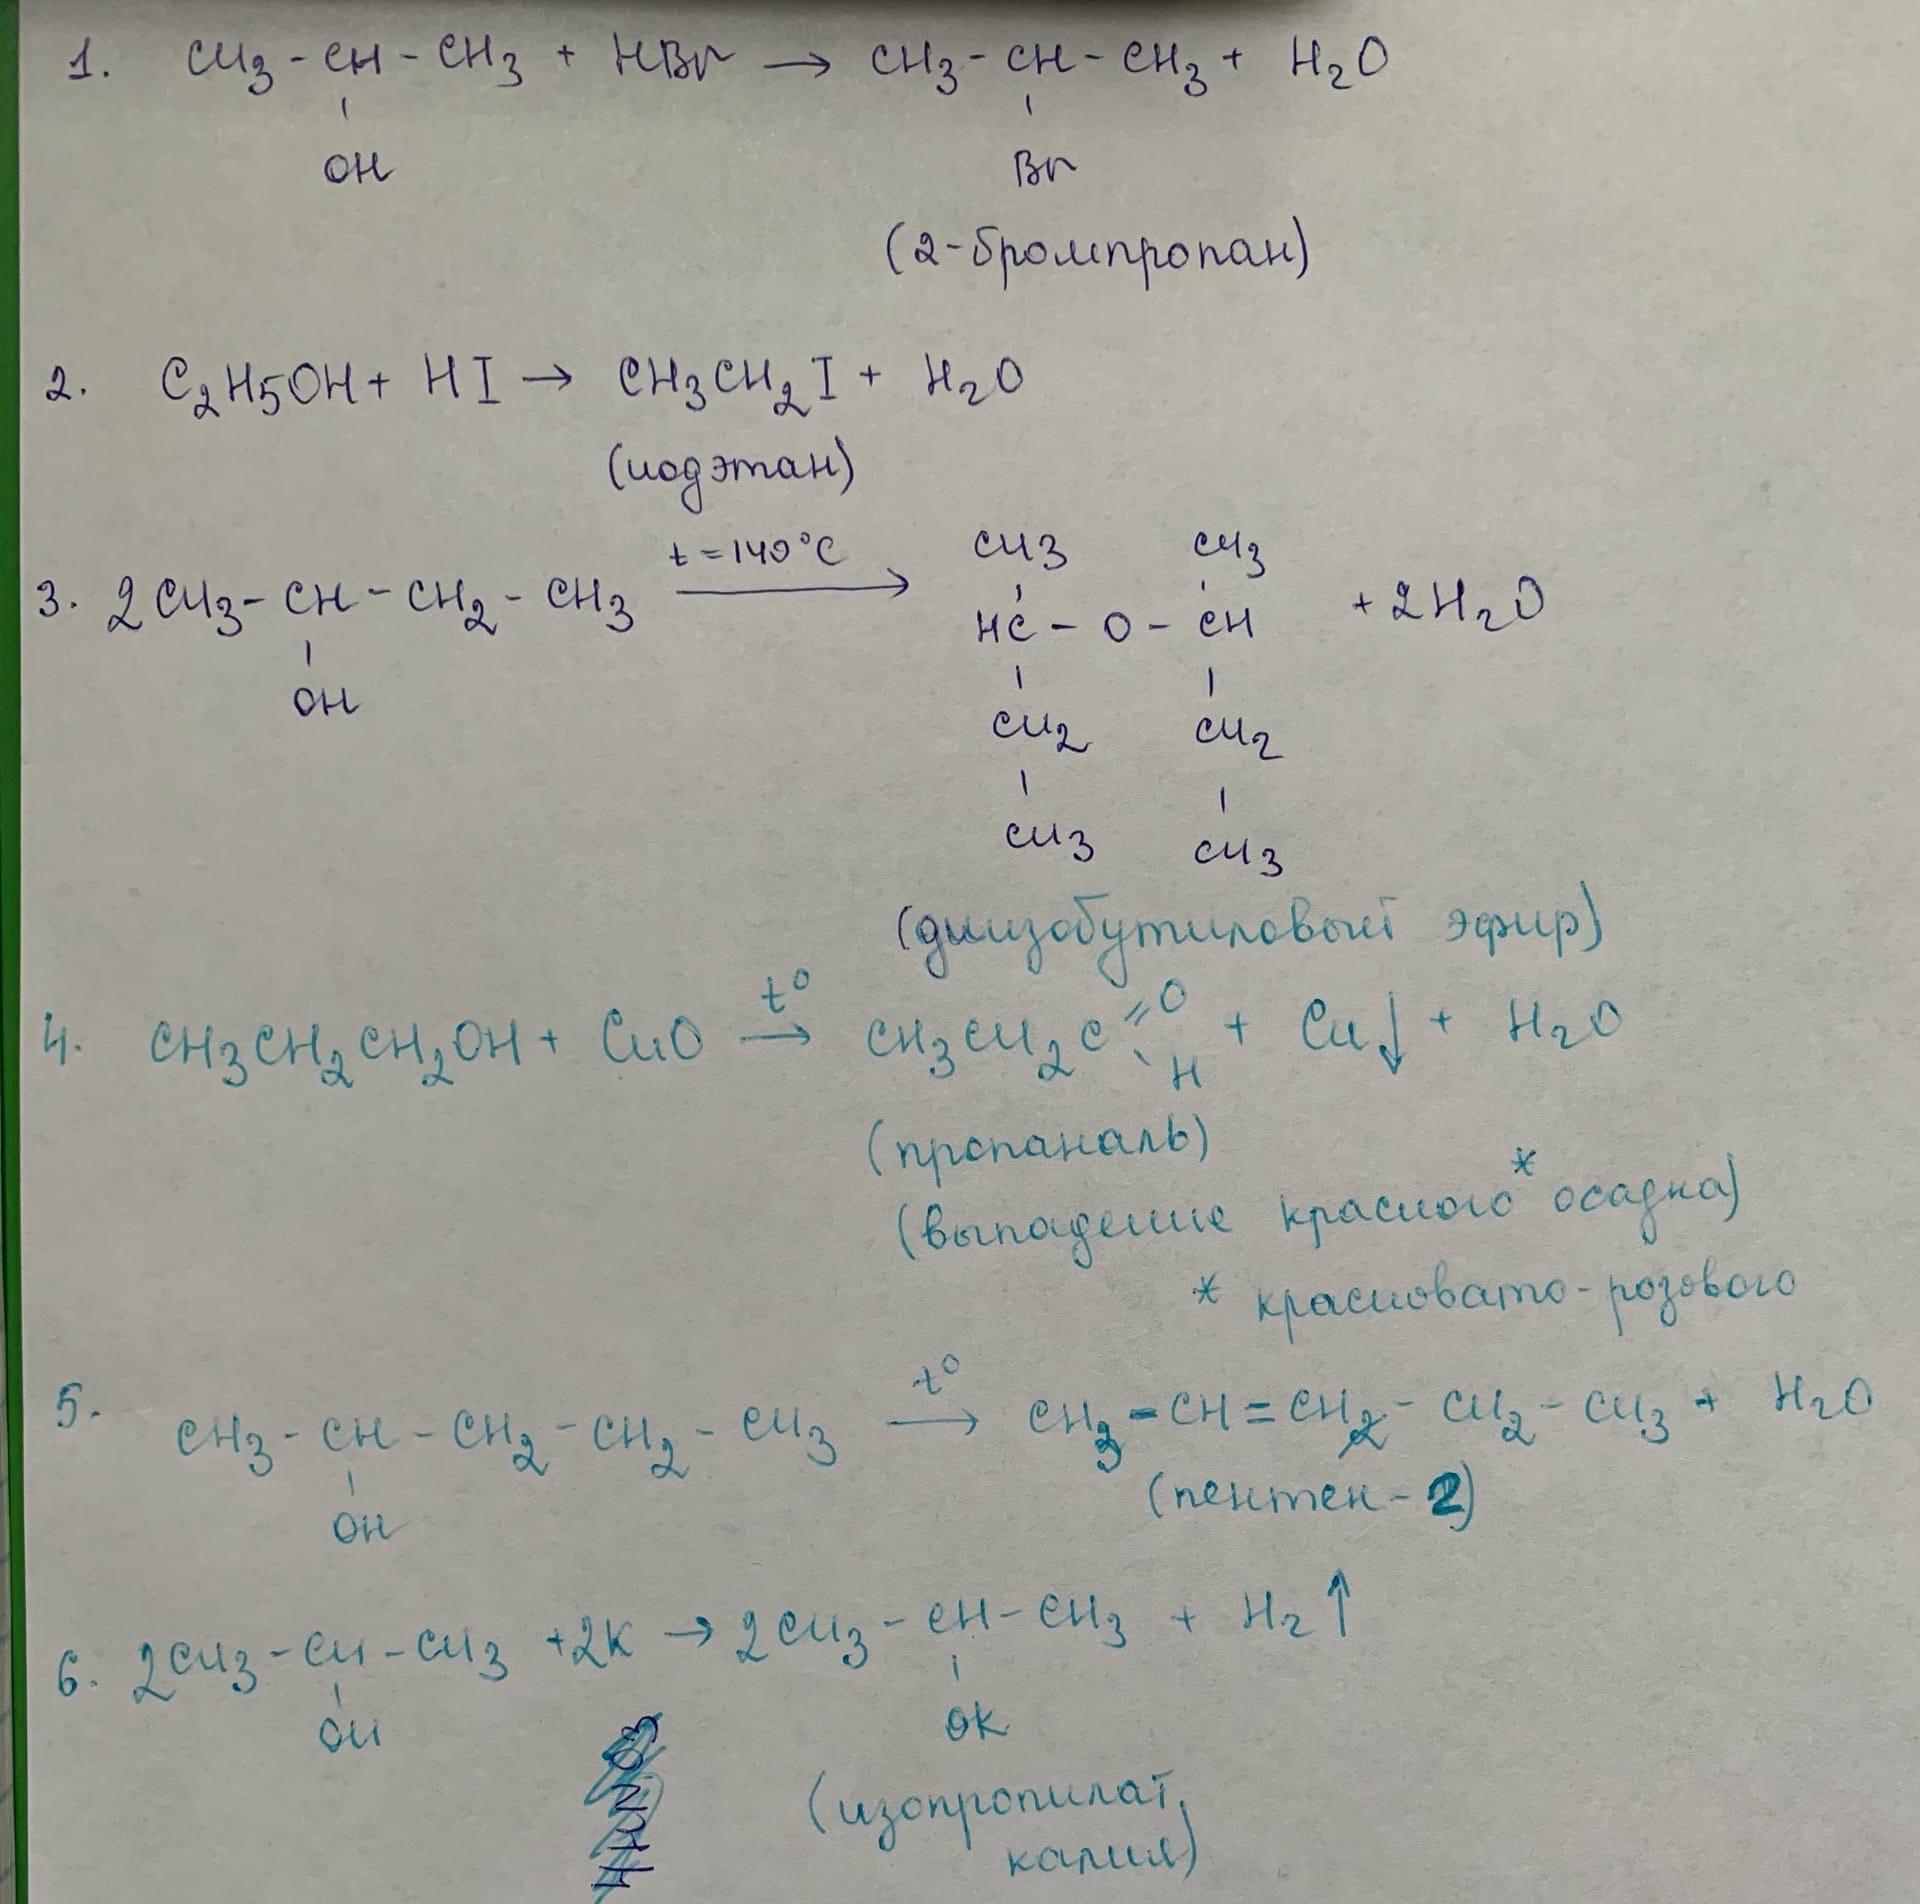 1. CH3 - CH - CH3 + HBr → CH3 - CH - CH3 + H2O
OH
Br
(2-бромпропан)
2. C2H5OH + HI → CH3CH2I + H2O
(иодэтан)
t = 140°C
CH3 CH3
3. 2CH3 - CH - CH2 - CH3 → HC - O - CH + 2H2O
OH
CH2 CH2
CH3 CH3
(диизобутиловый эфир)
t°
4. CH3CH2CH2OH + CuO → CH3CH2C =O H + Cu↓ + H2O
(пропаналь)
(выпадение красного* осадка)
* красновато-розового
t°
5. CH3 - CH - CH2 - CH2 - CH3 → CH3 - CH = CH - CH2 - CH3 + H2O
OH
(пентен-2)
6. 2CH3 - CH - CH3 + 2K → 2CH3 - CH - CH3 + H2↑
OH
OK
(изопропилат
калия)